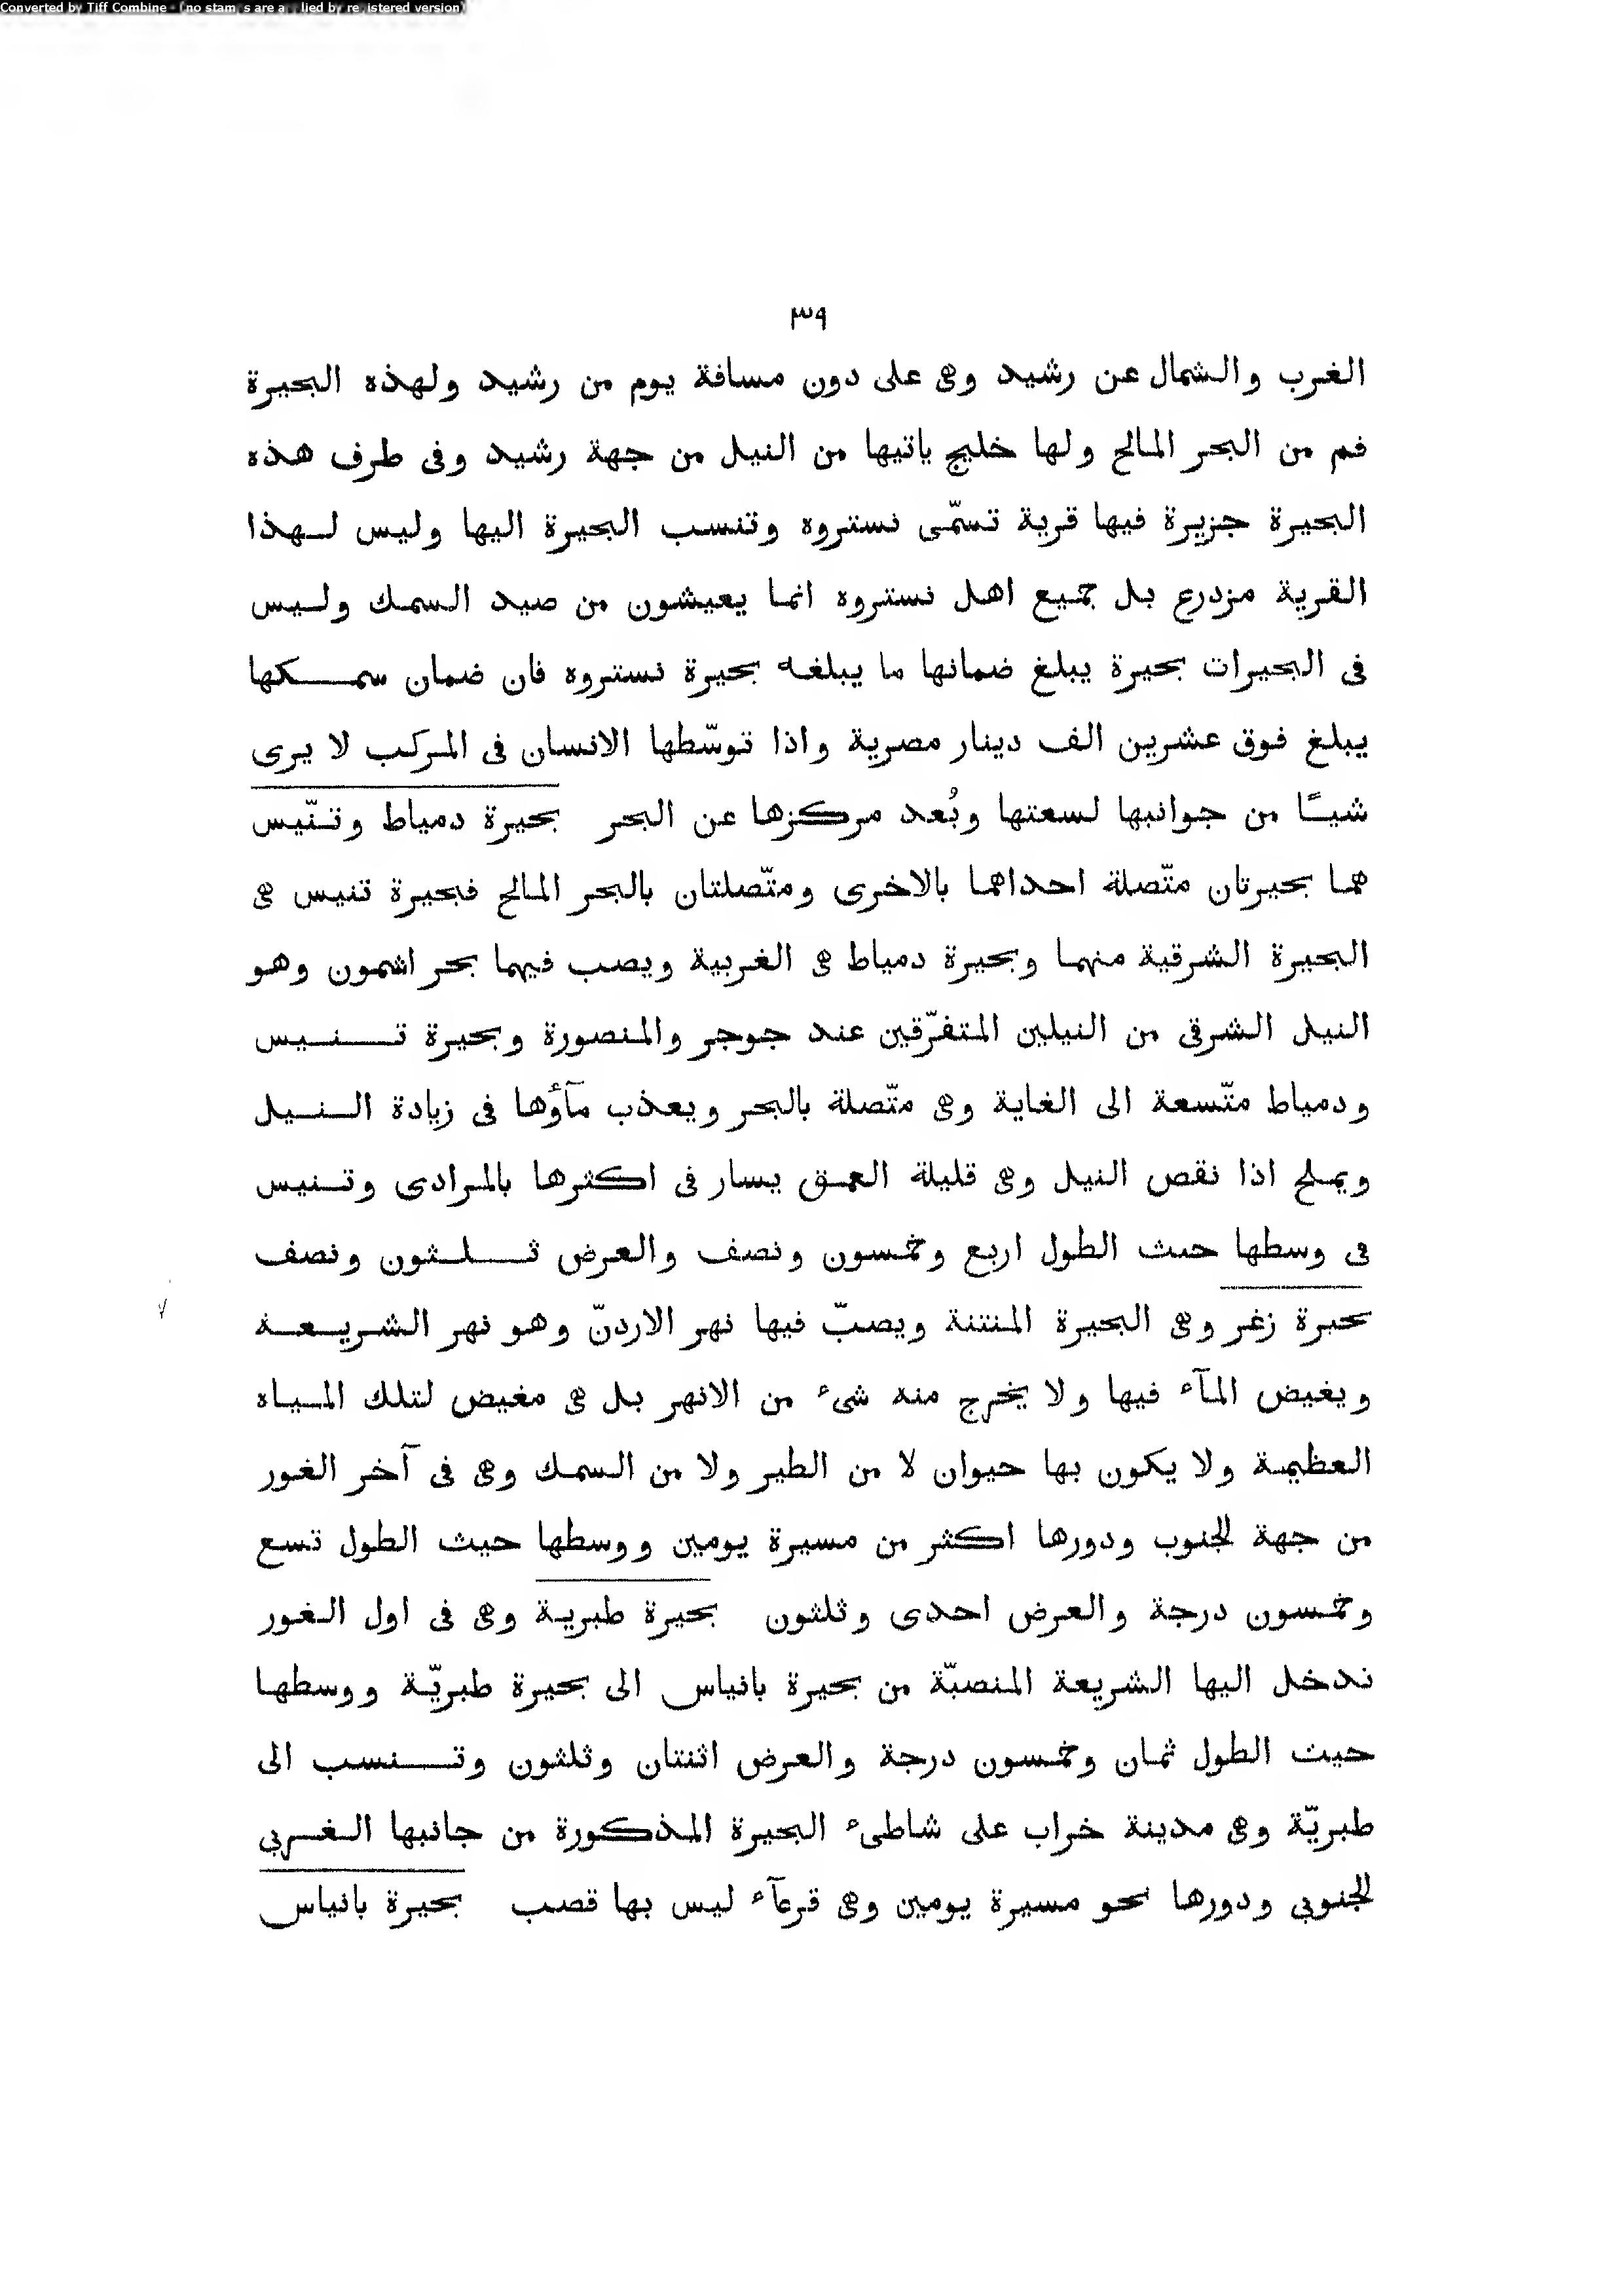 Converted by Tiff Combine - (no stamps are applied by registered version)
٣٩
الغرب والشمال عن رشيد وهى على دون مسافة يوم من رشيد ولهذه البحيرة
فم من البحر المالح ولها خليج ياتيها من النيل من جهة رشيد وفى طرف هذه
البحيرة جزيرة فيها قرية تسمّى نستروه وتنسب البحيرة اليها وليس لهذا
القرية مزدرع بل جميع اهل نستروه انما يعيشون من صيد السمك وليس
فى البحيرات بحيرة يبلغ ضمانها ما يبلغه بحيرة نستروه فان ضمان سمكها
يبلغ فوق عشرين الف دينار مصرية واذا توسّطها الانسان فى المركب لا يرى
شيـًا من جوانبها لسعتها وبُعد مركزها عن البحر بحيرة دمياط وتنّيس
هما بحيرتان متّصلة احداهما بالاخرى ومتّصلتان بالبحر المالح فبحيرة تنيس هى
البحيرة الشرقية منهما وبحيرة دمياط هى الغربية ويصب فيهما بحر اشمون وهو
النيل الشرقى من النيلين المتفرّقين عند جوجر والمنصورة وبحيرة تنيس
ودمياط متّسعة الى الغاية وهى متّصلة بالبحر ويعذب مآؤها فى زيادة النيل
ويملح اذا نقص النيل وهى قليلة العمق يسار فى اكثرها بالمرادى وتنيس
فى وسطها حيث الطول اربع وخمسون ونصف والعرض ثلثون ونصف
بحيرة زغر وهى البحيرة المنتنة ويصبّ فيها نهر الاردنّ وهو نهر الشريعة
ويغيض المآء فيها ولا يخرج منه شىء من الانهر بل هى مغيض لتلك المياه
العظيمة ولا يكون بها حيوان لا من الطير ولا من السمك وهى فى آخر الغور
من جهة الجنوب ودورها اكثر من مسيرة يومين ووسطها حيث الطول تسع
وخمسون درجة والعرض احدى وثلثون بحيرة طبرية وهى فى اول الغور
تدخل اليها الشريعة المنصبّة من بحيرة بانياس الى بحيرة طبريّة ووسطها
حيث الطول ثمان وخمسون درجة والعرض اثنتان وثلثون وتنسب الى
طبريّة وهى مدينة خراب على شاطىء البحيرة المذكورة من جانبها الغربى
الجنوبى ودورها نحو مسيرة يومين وهى قرعآء ليس بها قصب بحيرة بانياس